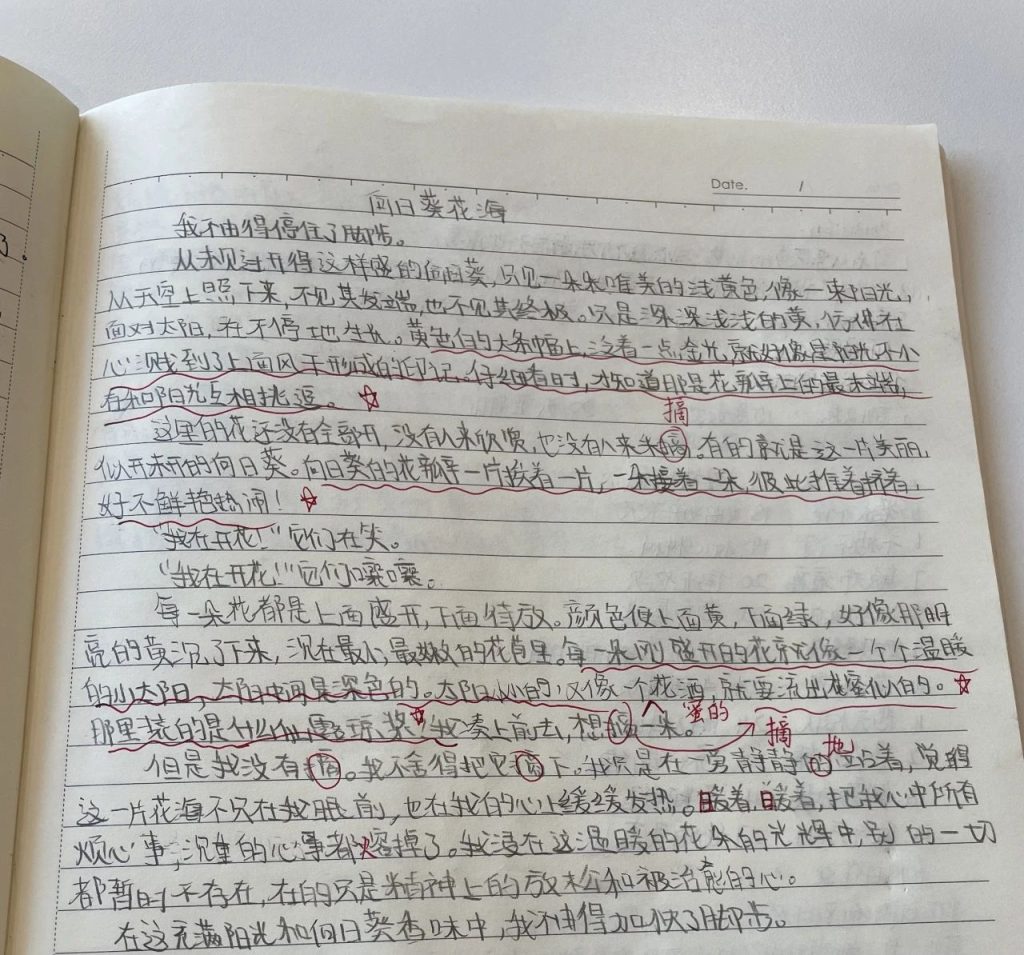 Date. /
3.
向日葵花海
我不由得停住了脚步。
从未见过开得这样盛的向日葵,只见一朵朵唯美的浅黄色,像一束阳光,
从天空上照下来,不见其发端,也不见其终极。只是深深浅浅的黄,仿佛在
面对太阳,在不停地生长。黄色的大条幅上,泛着一点金光,就好像是阳光不小
心溅到了上面风干形成的印记。仔细看时,才知道那是花瓣上的最末端,
在和阳光互相挑逗。
摘
这里的花还没有全部开,没有人来欣赏,也没有人来采。有的就是这一片美丽
似开未开的向日葵。向日葵的花瓣一片挨着一片,一朵接着一朵,彼此推着挤着,
好不鲜艳热闹!
“我在开花!”它们在笑。
“我在开花!”它们嚷嚷。
每一朵花都是上面盛开,下面待放。颜色便上面黄,下面绿,好像那明
亮的黄沉了下来,沉在最小,最嫩的花苞里。每一朵刚盛开的花就像一个个温暖
的小太阳,太阳中间是深色的。太阳小的,又像一个花洒,就要流出花蜜似的。
那里装的是什么仙露琼浆?我凑上前去,想一朵。
蜜的
摘
地
但是我没有。我不舍得把它下。我只是在一旁静静的立着,觉得
这一片花海不只在我眼前,也在我的心上缓缓发热。暖着,暖着,把我心中所有
烦心事,沉重的心事都熔掉了。我浸在这温暖的花朵的光辉中,别的一切
都暂时不存在,在的只是精神上的放松和被治愈的心。
在这充满阳光和向日葵香味中,我不由得加快了脚步。